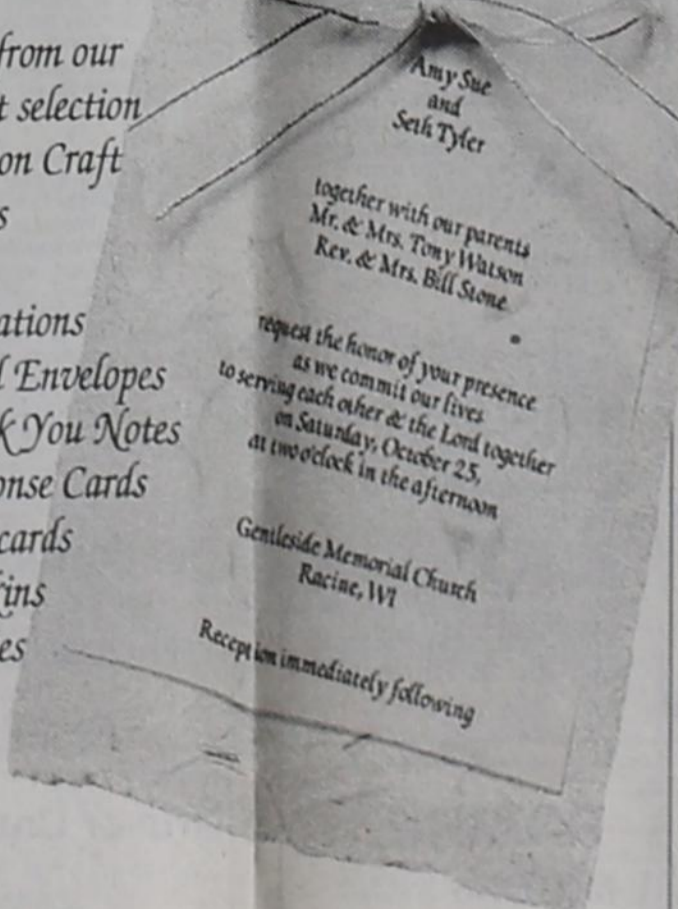 from our
t selection
on Craft
s
ations
l Envelopes
k You Notes
onse Cards
cards
kins
es
Amy Sue
and
Seth Tyler
together with our parents
Mr. & Mrs. Tony Watson
Rev. & Mrs. Bill Stone
request the honor of your presence
as we commit our lives
to serving each other & the Lord together
on Saturday, October 25,
at two o'clock in the afternoon
Gentleside Memorial Church
Racine, WI
Reception immediately following